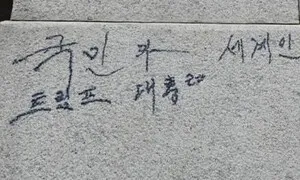 국민과 세계인
트럼프 대통령